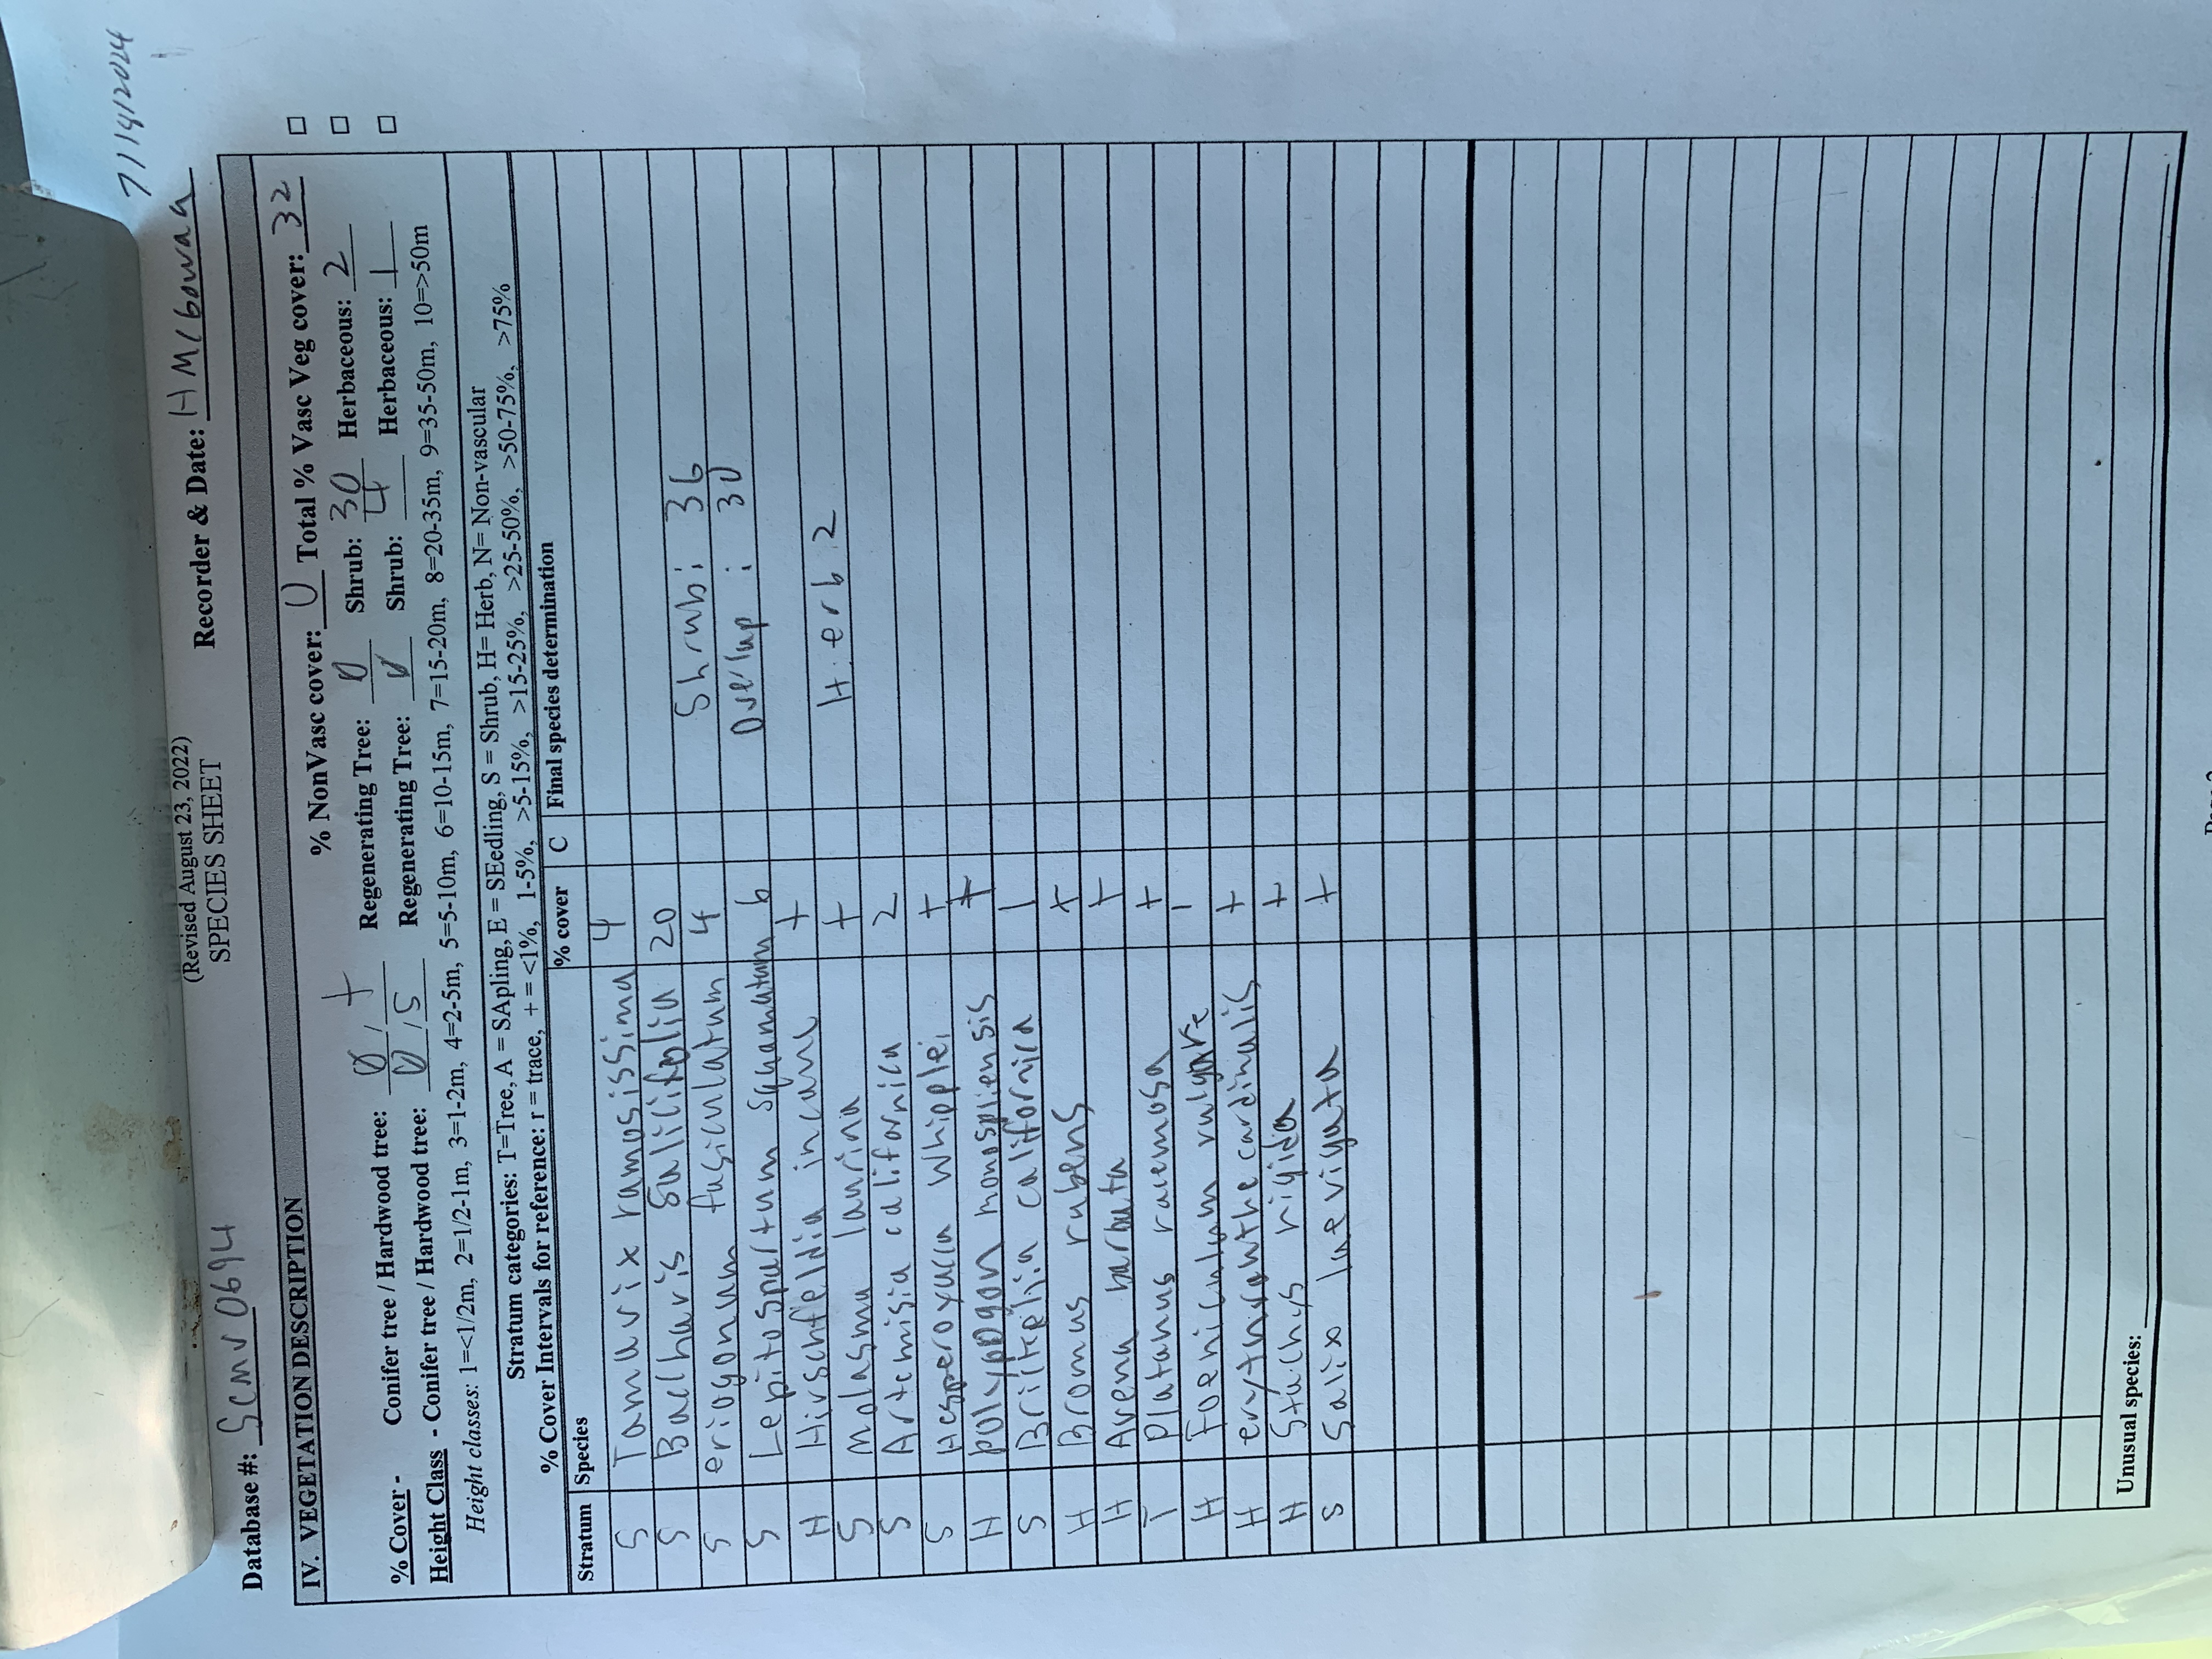 7/18/2024
(Revised August 23, 2022)
Database #: SCMV0694 SPECIES SHEET Recorder & Date: H McGowan
IV. VEGETATION DESCRIPTION
% NonVasc cover: 0 Total % Vasc Veg cover: 32
% Cover - Conifer tree / Hardwood tree: 0 / + Regenerating Tree: 0 Shrub: 30 Herbaceous: 2
Height Class - Conifer tree / Hardwood tree: 0 / 5 Regenerating Tree: 0 Shrub: 4 Herbaceous: 1
Height classes: 1=<1/2m, 2=1/2-1m, 3=1-2m, 4=2-5m, 5=5-10m, 6=10-15m, 7=15-20m, 8=20-35m, 9=35-50m, 10=>50m
Stratum categories: T=Tree, A = SApling, E = SEedling, S = Shrub, H= Herb, N= Non-vascular
% Cover Intervals for reference: r = trace, + = <1%, 1-5%, >5-15%, >15-25%, >25-50%, >50-75%, >75%
Stratum Species % cover C Final species determination
S Tamarix ramosissima 4
S Baccharis salicifolia 20
S eriogonum fasciculatum 4 Shrub: 36
S Lepitospartum squamatum 6 Overlap: 30
H Hirschfeldia incana +
S Malasma laurina + Herb: 2
S Artemisia californica 2
S Hesperoyucca whipplei +
H polypogon monospliensis +
S Brickelia californica 1
H Bromus rubens +
H Avena barbata +
T platanus racemosa +
H Foeniculum vulgare 1
H erythranthe cardinalis +
H Stachys rigida +
S Salix laevigata +
Unusual species: